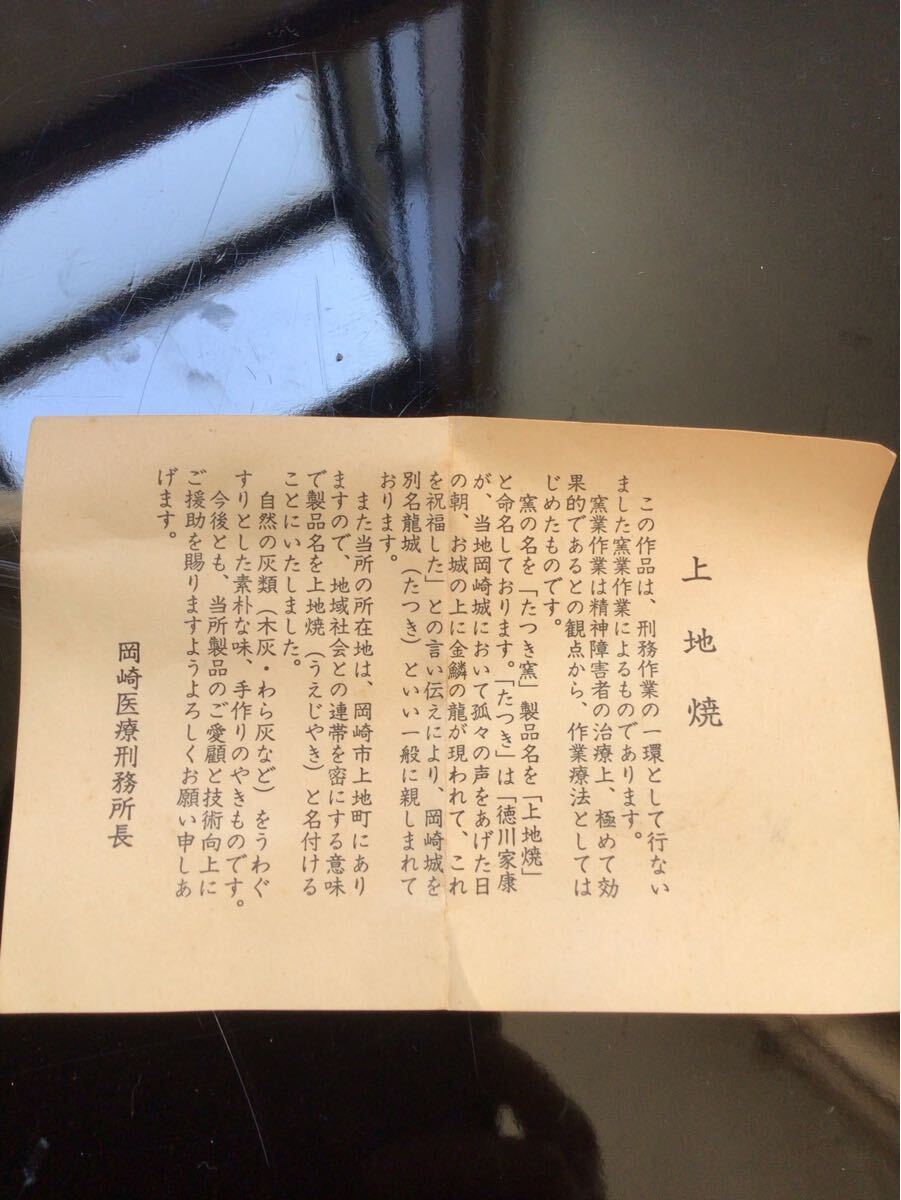 上地焼
この作品は、刑務作業の一環として行ない
ました窯業作業によるものであります。
窯業作業は精神障害者の治療上、極めて効
果的であるとの観点から、作業療法としては
じめたものです。
窯の名を「たつき窯」製品名を「上地焼」
と命名しております。「たつき」は「徳川家康
が、当地岡崎城において孤々の声をあげた日
の朝、お城の上に金鱗の龍が現われて、これ
を祝福した」との言い伝えにより、岡崎城を
別名龍城（たつき）といい一般に親しまれて
おります。
また当所の所在地は、岡崎市上地町にあり
ますので、地域社会との連帯を密にする意味
で製品名を上地焼（うえじやき）と名付ける
ことにいたしました。
自然の灰類（木灰・わら灰など）をうわぐ
すりとした素朴な味、手作りのやきものです。
今後とも、当所製品のご愛顧と技術向上に
ご援助を賜りますようよろしくお願い申しあ
げます。
岡崎医療刑務所長